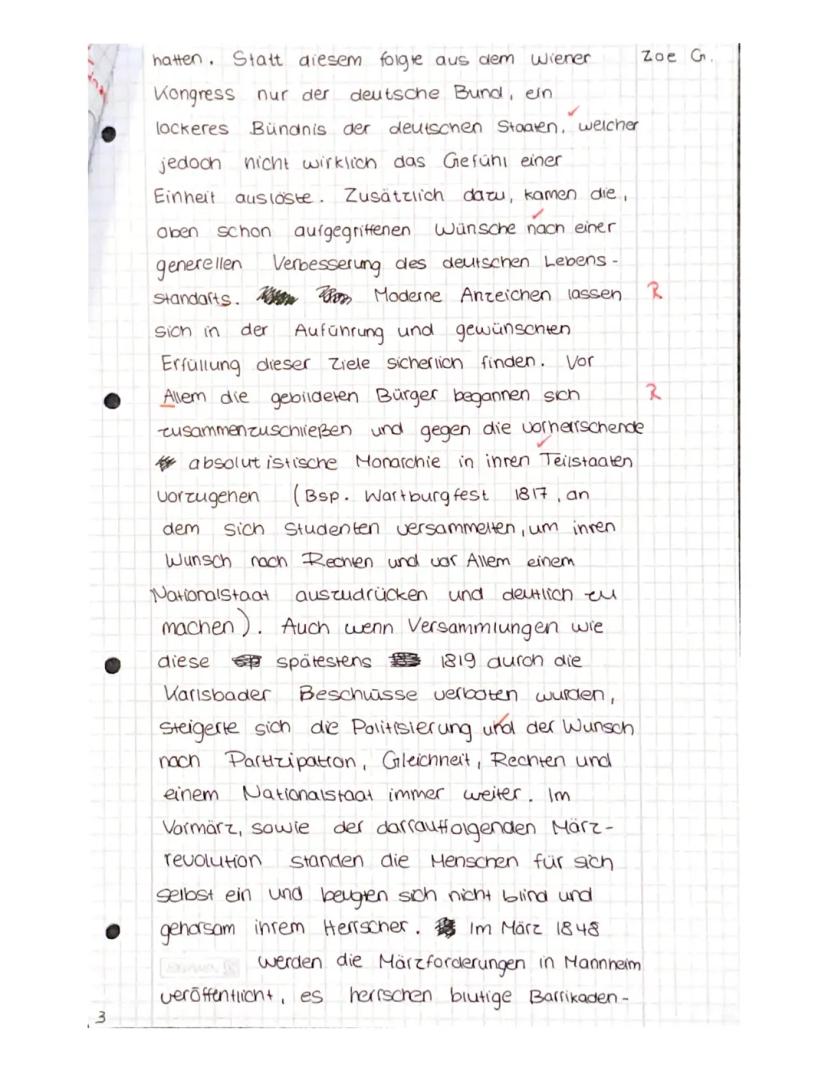 hatten. Statt diesem folgte aus dem Wiener Zoe G.
Kongress nur der deutsche Bund, ein
lockeres Bündnis der deutschen Staaten, welcher
jedoch nicht wirklich das Gefühl einer
Einheit auslöste. Zusätzlich dazu, kamen die,
oben schon aufgegriffenen Wünsche nach einer
generellen Verbesserung des deutschen Lebens-
standarts. Moderne Anzeichen lassen R
sich in der Auführung und gewünschten
Erfüllung dieser Ziele sicherlich finden. Vor
Allem die gebildeten Bürger begannen sich R
zusammenzuschließen und gegen die vorherrschende
absolutistische Monarchie in ihren Teilstaaten
vorzugehen (Bsp. Wartburgfest 1817, an
dem sich Studenten versammelten, um ihren
Wunsch nach Rechten und vor Allem einem
Nationalstaat auszudrücken und deutlich zu
machen). Auch wenn Versammlungen wie
diese spätestens 1819 durch die
Karlsbader Beschlüsse verboten wurden,
steigerte sich die Politisierung und der Wunsch
nach Partizipation, Gleichheit, Rechten und
einem Nationalstaat immer weiter. Im
Vormärz, sowie der darrauffolgenden März-
revolution standen die Menschen für sich
selbst ein und beugten sich nicht blind und
gehorsam ihrem Herrscher. Im März 1848
werden die Märzforderungen in Mannheim
veröffentlicht, es herrschen blutige Barrikaden-
3